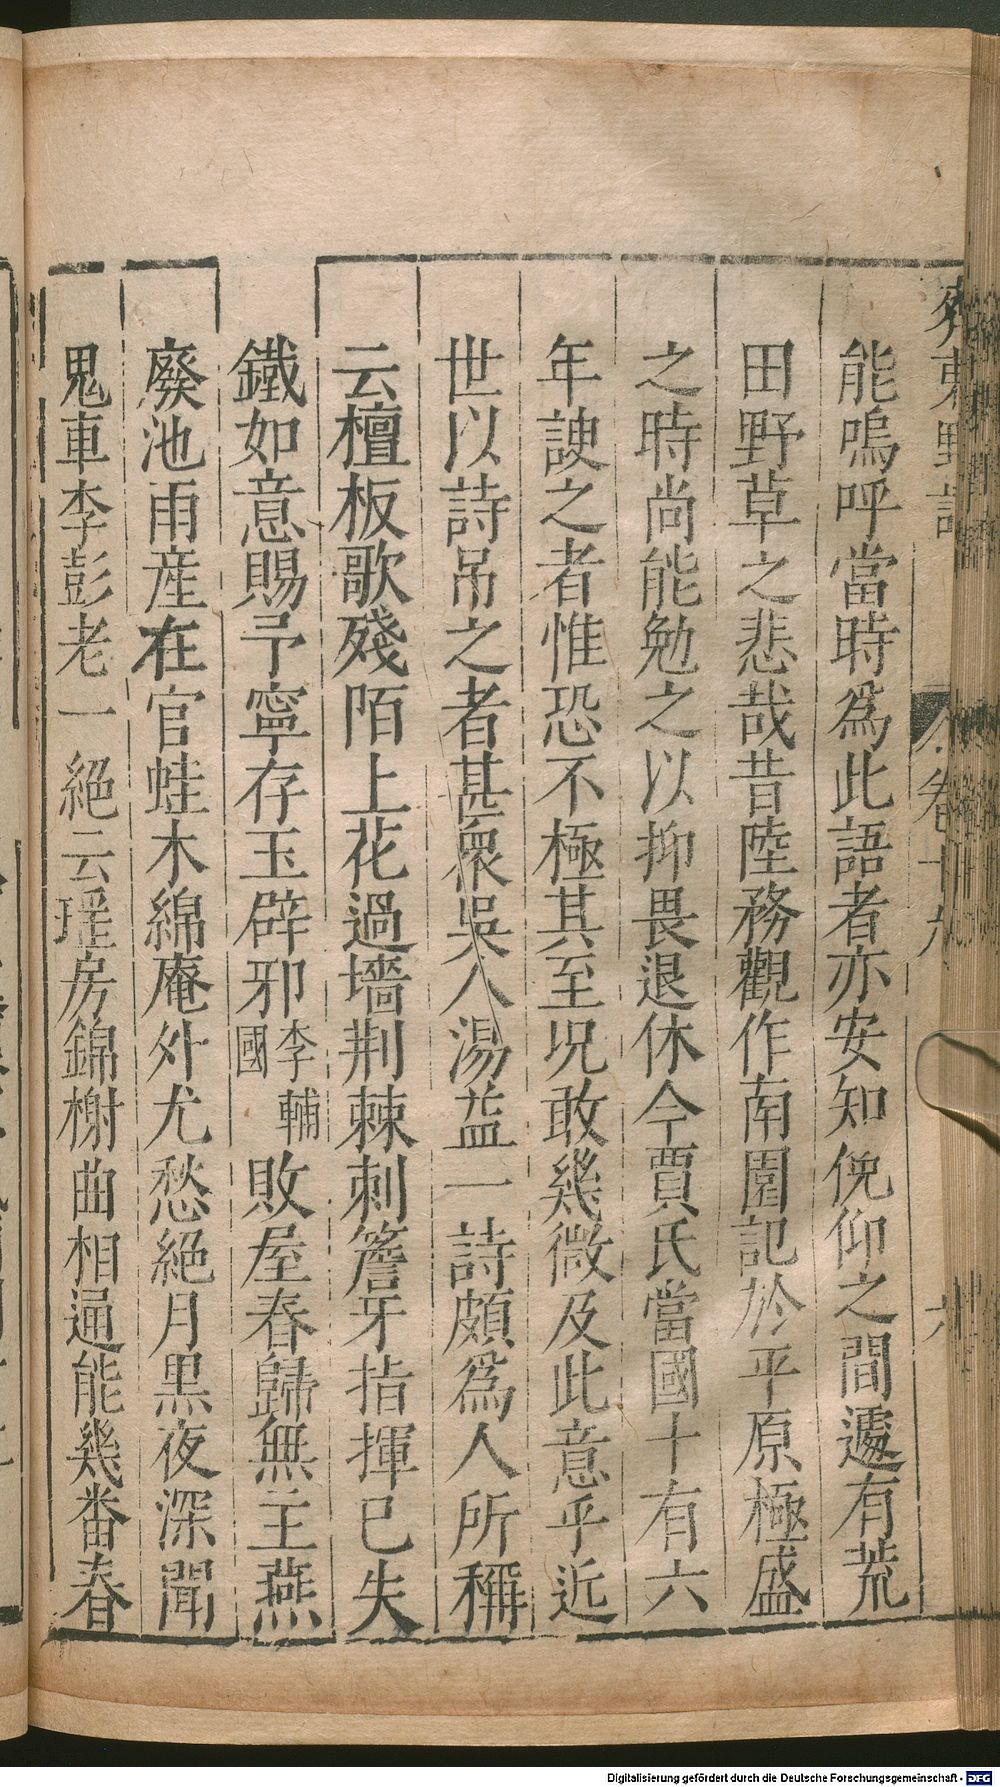 齊東野語 卷十九 六
能嗚呼當時爲此語者亦安知俛仰之間遽有荒
田野草之悲哉昔陸務觀作南園記於平原極盛
之時尚能勉之以抑畏退休今賈氏當國十有六
年諛之者惟恐不極其至况敢幾微及此意乎近
世以詩吊之者甚衆吳人湯益一詩頗爲人所稱
云檀板歌殘陌上花過墻荆棘刺簷牙指揮已失
鐵如意賜予寧存玉辟邪李輔國敗屋春歸無主燕
廢池雨産在官蛙木綿庵外尤愁絕月黒夜深聞
鬼車李彭老一絕云瑤房錦榭曲相通能幾番春
Digitalisierung gefördert durch die Deutsche Forschungsgemeinschaft - DFG